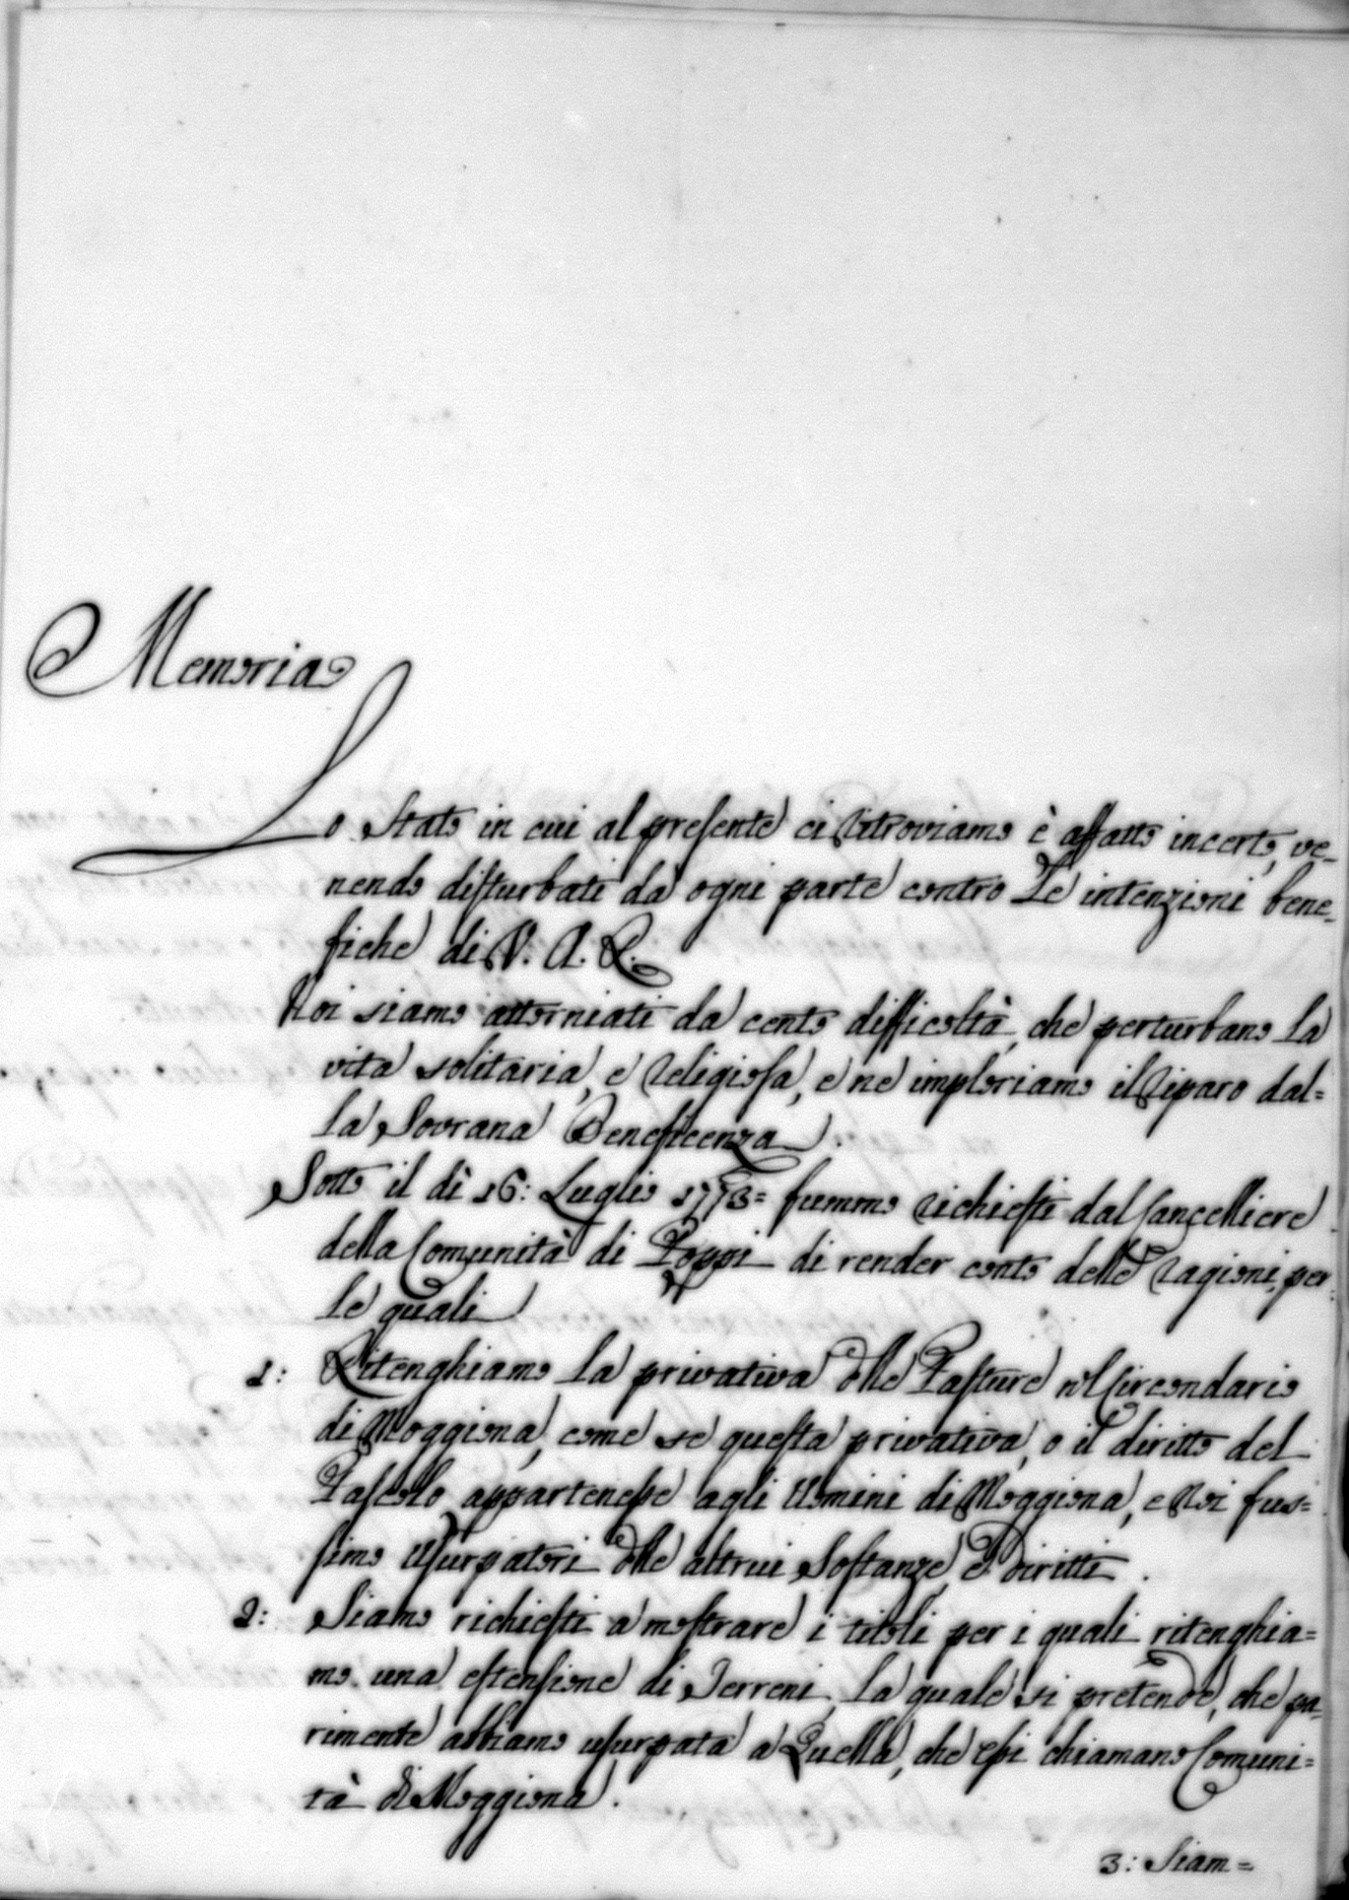 Memoria
Lo Stato in cui al presente ci ritroviamo è affatto incerto, ve-
nendo disturbati da ogni parte contro Le intenzioni bene-
fiche di V. A. R.
Noi siamo attorniati da cento difficoltà, che perturbano la
vita solitaria, e religiosa, e ne imploriamo il riparo dal=
la Sovrana Beneficenza.
Sotto il dì 16: Luglio 1773= fummo richiesti dal Cancelliere
della Comunità di Poppi di render conto delle ragioni, per
le quali
1: Ritenghiamo la privativa delle Pasture nel Circondario
di Moggiona, come se questa privativa, o il diritto del
Pascolo appartenesse agli Uomini di Moggiona, e Noi fus=
simo Usurpatori delle altrui Sostanze, e Diritti.
2: Siamo richiesti a mostrare i titoli per i quali ritenghia=
mo una estensione di Terreni, la quale si pretende, che pa-
rimente abbiamo usurpata a Quella, che essi chiamano Comuni=
tà di Moggiona.
3: Siam=